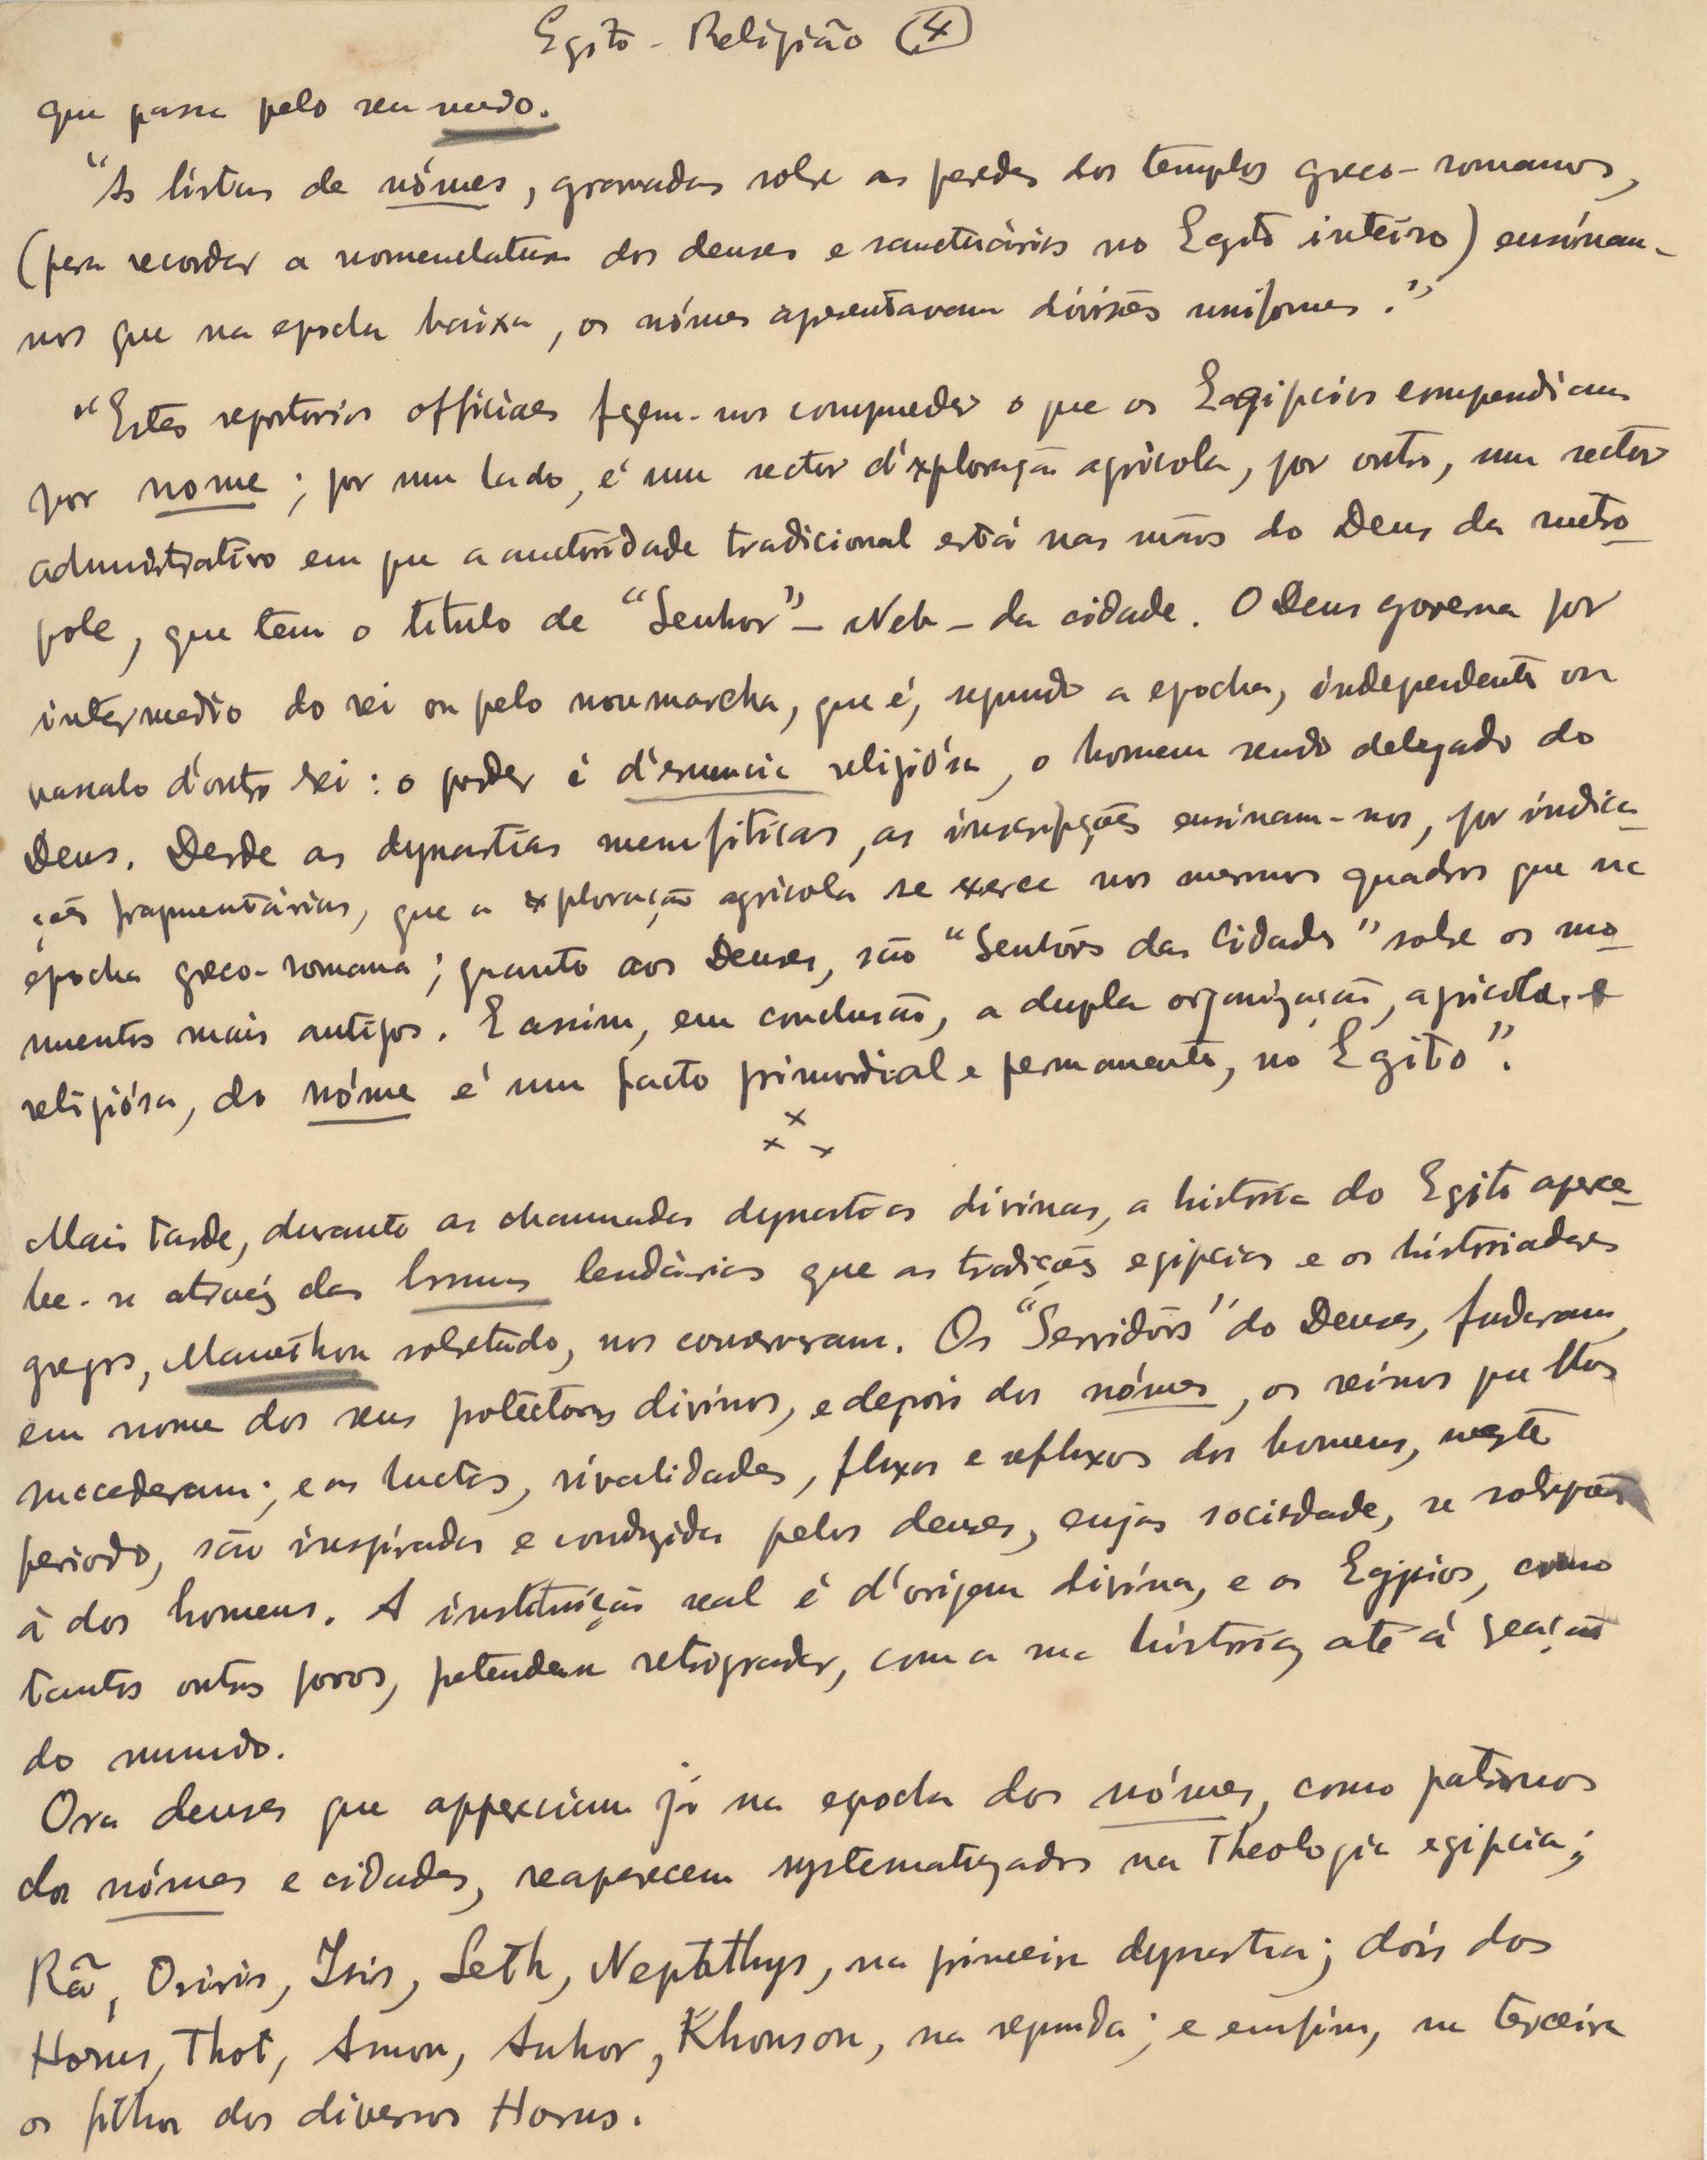 Egito - Religião (4)
que passa pelo seu medo.
"As listas de nómes, gravadas sobre as paredes dos templos greco-romanos,
(para recordar a nomenclatura dos deuses e sanctuários no Egito inteiro) ensinam-
nos que na epocha baixa, os nómes apresentavam divisões uniformes."
"Estes reportorios officiaes fazem-nos comprueder o que os Eegipcios compendiam
por nome; por um lado, é um sector d'exploração agricola, por outro, um sector
administrativo em que a auctoridade tradicional está nas mãos do Deus da metro
pole, que tem o titulo de "Senhor" - Neb - da cidade. O Deus governa por
intermedio do rei ou pelo noumarcha, que é, segundo a epocha, independente ou
vassalo d'outro rei: o poder é d'essencia religiósa, o homem sendo delegado do
Deus. Desde as dynastias memfiticas, as inscripções ensinam-nos, por indica
ções fragmentárias, que a exploração agricola se exerce nos mesmos quadros que na
epocha greco-romana; quanto aos Deuses, são "Senhôrs das Cidades" sobre os mo
numentos mais antigos. E assim, em conclusão, a dupla organização, agricola e
religiósa, do nóme é um facto primordial e permanente, no Egito".
x x x
Mais tarde, durante as chamadas dynastias divinas, a historia do Egito aperce
be-se através das brumas lendárias que as tradições egipcias e os historiadores
gregos, Manethon sobretudo, nos conservaram. Os "Servidôrs" do Deuses, fuderam,
em nome dos seus protectores divinos, e depois dos nómes, os reinos que lhes
succederam; e as luctas, rivalidades, fluxos e refluxos dos homens, neste
periodo, são inspirados e conduzidos pelos deuses, cujas sociedade, se sobrepõe
à dos homens. A instituição real é d'origem divina, e os Egipcios, como
tantos outros povos, pretendem retrogradar, com a sua história, até á geação
do mundo.
Ora deuses que appareciam já na epocha dos nómes, como patronos
dos nómes e cidades, reaparecem systematizados na Theologia egipcia;
Rã, Osiris, Isis, Seth, Nephthys, na primeira dynastia; dois dos
Horus, Thot, Amon, Anhor, Khonsou, na segunda; e emfim, na terceira
os filhos dos diversos Horus.